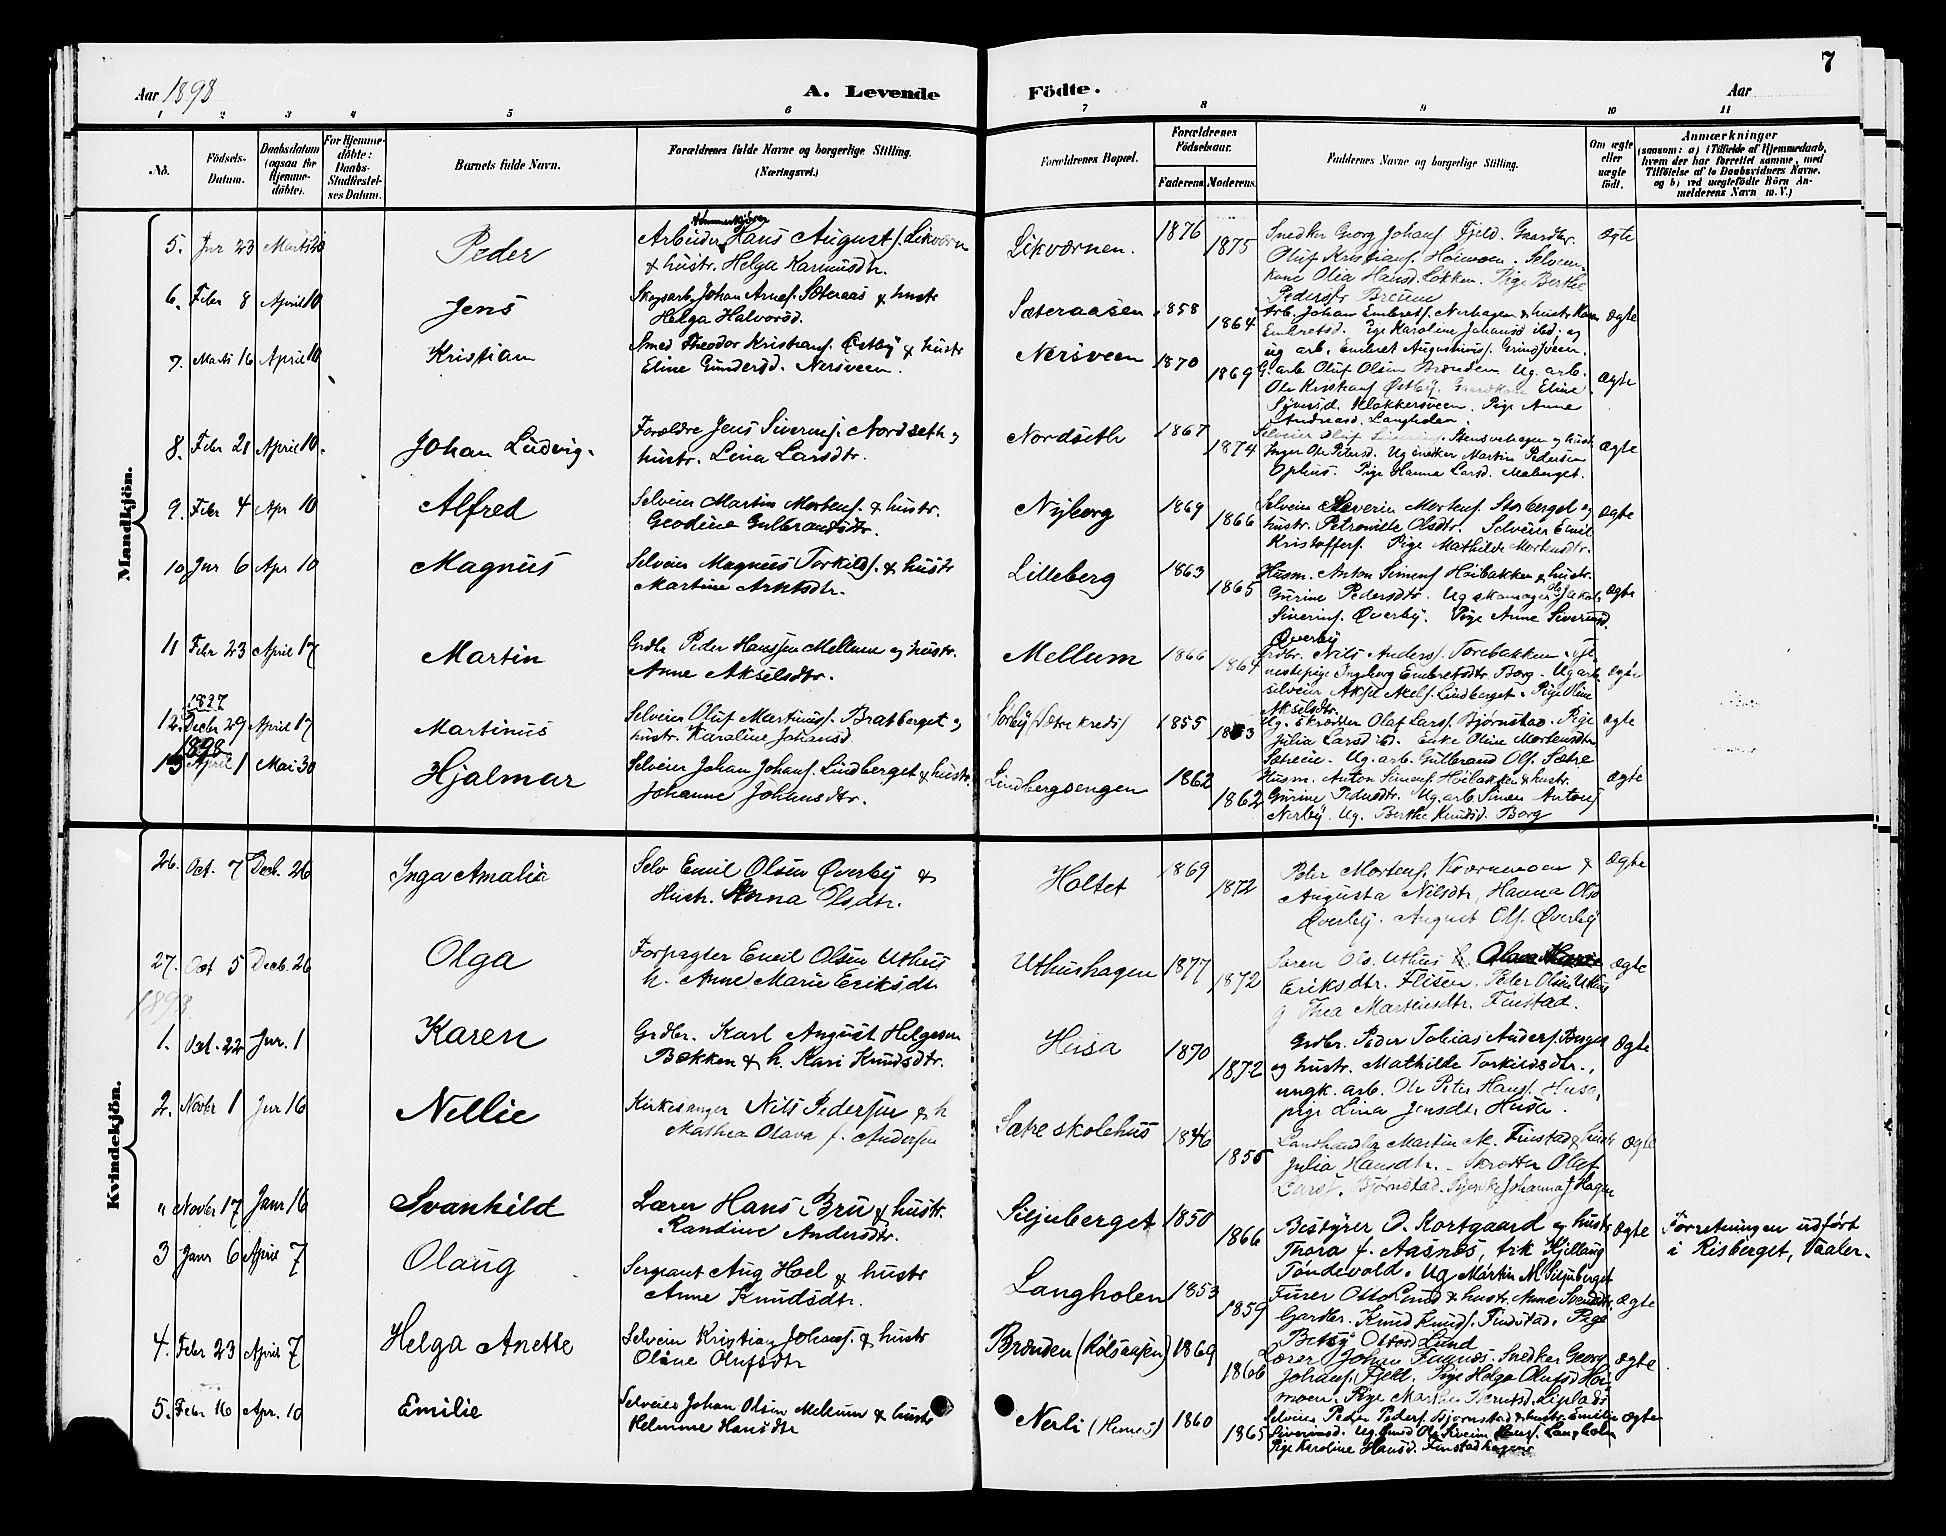 7
Aar 1898
A. Levende
Födte.
Aar
1 2 3 4 5 6 7 8 9 10 11
No.
Födsels-
Datum.
Daabsdatum
(ogsaa for
Hjemme-
döbte).
For Hjemme-
döbte:
Daabs-
Stadfæstel-
ses Datum.
Barnets fulde Navn.
Forældrenes fulde Navne og borgerlige Stilling.
(Næringsvei.)
Forældrenes Bopæl.
Forældrenes
Födselsaar.
Faderens. Moderens.
Faddernes Navne og borgerlige Stilling.
Om ægte
eller
uægte
födt.
Anmærkninger
(saasom: a) i Tilfælde af Hjemmedaab,
hvem der har forrettet samme, med
Tilföielse af to Daabsvidners Navne.
og b) ved uægtefödte Börn An-
melderens Navn m. V.)
Mandkjön.
5. Jnr 23 Peder
Arbeider Hans August s. Likværn
& hustr. Helga Rasmusdtr.
Likværnen. 1876 1875
Snedker Georg Johans. Fjeld. Gaardbr.
Oluf Kristians. Hoimoen. Selveier
kone Olia Hansd. Løkken. Pige Berthe
ægte
6. Febr 8 April 10 Jens
Skogsarb. Johan Arnes. Sæteraas & hustr
Helga Halvorsd.
Sæteraasen 1858 1864
Arb. Johan Embrets. Nerhagen & hustr Karen
Embretsd. Pige Karoline Johansd ibd. og
ug arb. Embret Augustinus. Grindsveen.
ægte
7. Marts 16 April 10 Kristian
Smed Theodor Kristians. Østby & hustr
Eline Gundersd. Nersveen.
Nersveen 1870 1869
G. arb Oluf Olsen Brænden. Ug. arb.
Ole Kristians Østby. Eline
Klokkersveen. Pige Anne
Andreasd. Langholen.
ægte
8. Febr 21 April 10. Johan Ludvig.
Forældre Jens Siverins. Nordseth og
hustr. Lina Larsdtr.
Nordseth 1867 1874
Stensvehagen og hustr
Inger Ols Petersd. Ug snedker Martin Pedersen
Ophus. Pige Hanna Larsd. Malberget.
ægte
9. Febr 4 Apr 10 Alfred
Selveier Martin Mortens. & hustr.
Geodine Gulbrandsdtr.
Nyborg 1869 1866
Selveier Severin Mortens. Storberget og
hustr. Petronille Olsdtr. Selveier Emil
Kristoffers. Pige Mathilde Mortensdtr.
ægte
10 Jnr 6 Apr 10 Magnus
Selveier Magnus Torkilds. & hustr
Martine Arntsdtr.
Lilleberg 1863 1865
Husm. Anton Simens Høibakken & hustr.
Gurine Pedersdtr. Ug skomager Jakob
Siverins. Øverby. Pige Anne Siverinsd.
Øverby
ægte
11 Febr 23 April 17 Martin
Grdbr Peder Hanssen Mellum og hustr.
Anne Akselsdtr.
Mellum 1866 1864
Grdbr. Nils Anders. Torebakken. tje-
nestepige Ingeborg Embretsdtr Borg. Ug arb.
selveier Aksel Aksels. Lindberget. Pige Oline
Akselsdtr.
ægte
1897
12. Decbr 29 April 17 Martinus
Selveier Oluf Martinus. Bratberget og
hustr. Karoline Johansd.
Sørby (Sætre kreds) 1855
Ug. skrædder Olaf Lars. Bjørnstad. Pige
Julia Larsd ibd. Enke Oline Mortensdtr
Sætreeie. Ug. arb. Gulbrand Ols. Sætre
ægte
1898
13 April 1 Mai 30 Hjalmar
Selveier Johan Johans. Lindberget & hustr.
Johanne Johansdtr.
Lindbergsengen 1862 1862
Husm. Anton Simens. Høibakken & hustr.
Gurine Pedersdtr. Ug. arb. Simen Antons
Nerby. Ug. Berthe Knudsd. Borg
ægte
Kvindekjön.
26. Oct. 7 Decb. 26 Inga Amalia
Selv Emil Olsen Øverby &
Hustr. Anna Olsdtr.
Holtet 1869 1872
Peter Mortens. Kværnmoen &
Augusta Nilsdtr, Hanna Olsd
Øverby. August Ols. Øverby
ægte
27. Oct 5 Decb. 26 Olga
Forpagter Emil Olsen Uthus
h. Anne Marie Eriksdtr
Uthushagen 1877 1872
Søren Ols. Uthus
Eriksdtr. Flisen. Peter Olsen Uthus
og Thea Martinsdtr. Finstad.
ægte
1898
1. Oct. 22 Jnr. 1 Karen
Grdbr. Karl August Helgesen
Bækken & h. Kari Knudsdtr.
Husa 1870 1872
Grdbr. Peder Tobias Anders. Berget
og hustr. Mathilde Torkildsdtr.,
ungk. arb. Ole Peter Hans. Husa,
pige Lina Jensdtr Husa.
ægte
2. Novbr 1 Jnr 16 Nellie
Kirkesanger Nils Pedersen & h
Mathea Olava f. Andersen
Sætre skolehus 1846 1855
Landhandler Martin M. Finstad & hustr
Julia Hansdtr. Skrædder Olaf
Lars. Bjørnstad. Johanna J Hagen
ægte
" Novbr 17 Janr 16 Svanhild
Lærer Hans Bru & hustr.
Randine Andersdtr.
Siljuberget 1850 1866
Bestyrer O. Kortgaard og hustr
Thora f. Aasnes, frk Kjellaug
Tøndevold. Ug Martin M Siljuberget
ægte
Forretningen udført
i Risberget, Vaaler.
3 Janr 6 April 7 Olaug
Sergeant Aug Hoel & hustr
Anne Knudsdtr.
Langholen 1853 1859
Furer Otto Lund & hustr. Anne Svendsdtr.
Gardbr. Knud Knuds. Finstad. Pige
Betsy Ottosd Lund
ægte
4. Febr 23 April 7 Helga Anette
Selveier Kristian Johans. & hustr
Oline Olufsdtr
Brænden (Kølsaasen) 1869 1866
Lærer Johan Faanes. Snedker Georg
Johans. Fjeld. Pige Helga Olufsd Hoi-
moen. Pige Marthe Berntsd. Lipladsr
ægte
5. Febr 16 Apr. 10 Emilie
Selveier Johan Olsen Mellum & hustr
Helmine Hansdtr
Nerli (Hernes) 1860 1865
Selveier Peder Peders. Bjørnstad & hustr. Emilie
Siverinsd. Ug. smed Ole Siverin Hans. Langholen
Pige Karoline Hansd. Finstadhagen
ægte